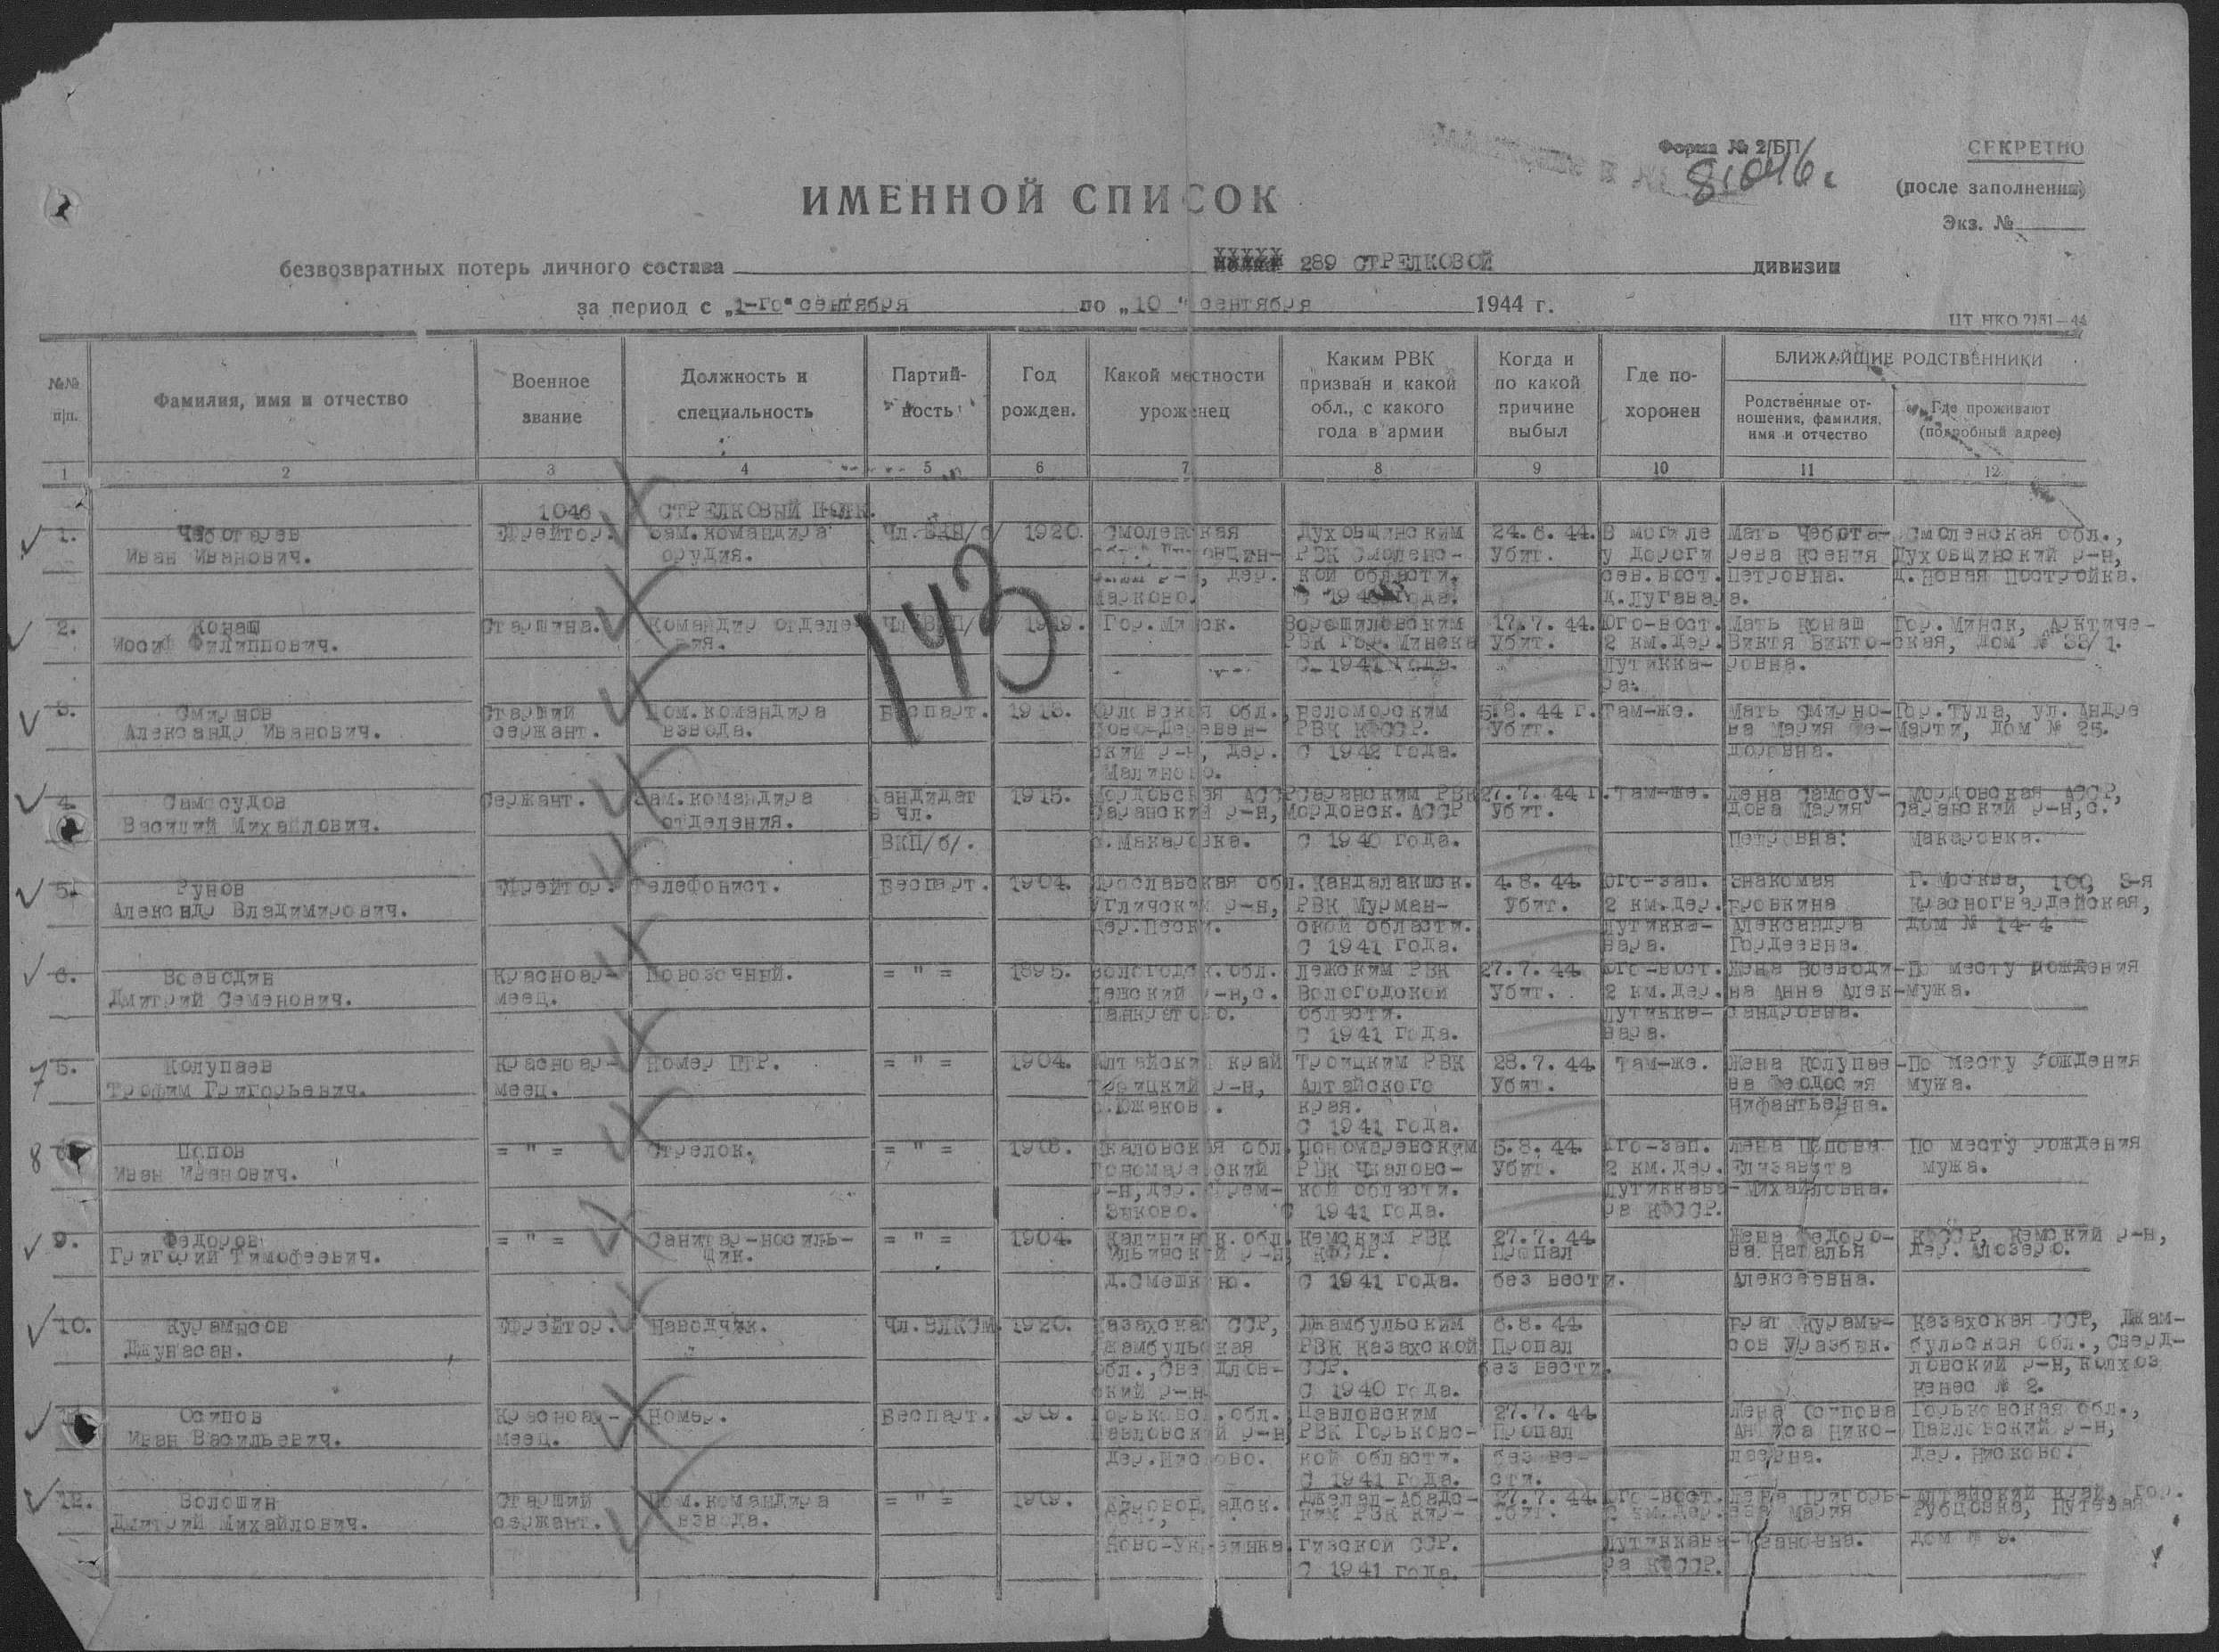 Форма № 2/БП
СЕКРЕТНО
(после заполнения)
Экз. №
ИМЕННОЙ СПИСОК
безвозвратных потерь личного состава 289 СТРЕЛКОВОЙ дивизии
за период с „1-го" сентября по „10" сентября 1944 г.
ЦТ НКО 2151—44
№№ п/п.
Фамилия, имя и отчество
Военное звание
Должность и специальность
Партийность
Год рожден.
Какой местности уроженец
Каким РВК призван и какой обл., с какого года в армии
Когда и по какой причине выбыл
Где похоронен
БЛИЖАЙШИЕ РОДСТВЕННИКИ
Родственные отношения, фамилия, имя и отчество
Где проживают (подробный адрес)
1 2 3 4 5 6 7 8 9 10 11 12
143
1046 СТРЕЛКОВЫЙ ПОЛК.
1. Чеботарев Ефрейтор. Зам.командира Чл.ВКП/б/ 1920. Смоленская Духовщинским 24.6.44. В могиле Мать Чебота- Смоленская обл.,
Иван Иванович. орудия. РВК Смоленс- Убит. у дороги рева Ксения Духовщинский р-н,
дер. кой области. сев.вост. Петровна. д.Новая Постройка.
Марково. года. д.Лугавара.
2. Конаш Старшина. Командир отделе- 1919. Гор.Минск. Ворошиловским 17.7.44. Юго-вост. Мать Конаш Гор.Минск, Арктиче-
Иосиф Филиппович. ния. РВК Гор.Минска Убит. 2 км.дер. Виктя Викто- ская, дом № 33/1.
С 1941 года. Лутикка- ровна.
ра.
3. Смирнов Старший Пом.командира Беспарт. 1918. Орловская обл., Беломорским 5.8.44 г. Там-же. Мать Смирно- Гор.Тула, ул.Андре
Александр Иванович. сержант. взвода. Ново-Деревен- РВК КФССР. Убит. ва Мария Фе- Марти, дом № 25.
ский р-н, дер. С 1942 года. доровна.
Малиново.
4. Самосудов Сержант. Зам.командира Кандидат 1915. Мордовская АССР Саранским РВК 27.7.44 г. Там-же. Жена Самосу- Мордовская АССР,
Василий Михайлович. отделения. в чл. Саранский р-н, Мордовск.АССР Убит. дова Мария Саранский р-н,с.
ВКП/б/. с.Макаровка. С 1940 года. Петровна. Макаровка.
5. Рунов Ефрейтор. Телефонист. Беспарт. 1904. Ярославская обл. Кандалакшск. 4.8.44. Юго-зап. Знакомая Г.Москва, 100, 3-я
Александр Владимирович. Угличский р-н, РВК Мурман- Убит. 2 км.дер. Бровкина Красногвардейская,
дер.Пески. ской области. Лутикка- Александра дом № 14-4
С 1941 года. вара. Гордеевна.
6. Воеводин Красноар- Повозочный. = " = 1895. Вологодск.обл. Лежским РВК 27.7.44. Юго-вост. Жена Воеводи- По месту рождения
Дмитрий Семенович. меец. Лежский р-н,с. Вологодской Убит. 2 км.дер. на Анна Алек- мужа.
Панкратово. области. Лутикка- сандровна.
С 1941 года. вара.
7 Колупаев Красноар- Номер ПТР. = " = 1904. Алтайский край Троицким РВК 28.7.44. Там-же. Жена Колупае- По месту рождения
Трофим Григорьевич. меец. Троицкий р-н, Алтайского Убит. ва Феодосия мужа.
с.Южаково. края. Нифантьевна.
С 1941 года.
8 Попов = " = Стрелок. = " = Чкаловская обл. Пономаревским 5.8.44. Юго-зап. Жена Попова По месту рождения
Иван Иванович. Пономаревский РВК Чкаловс- Убит. 2 км.дер. Елизавета мужа.
р-н,дер. кой области. Лутиккава- Михайловна.
С 1941 года. ра КФССР.
9. Федоров = " = Санитар-носиль- = " = 1904. Калининск.обл. Кемским РВК 27.7.44. Жена Федоро- КФССР, Кемский р-н,
Григорий Тимофеевич. щик. Ильинский р-н, КФССР. Пропал ва Наталья дер.
д.Смешкино. С 1941 года. без вести. Алексеевна.
10. Курамысов Ефрейтор. Наводчик. Чл.ВЛКСМ. 1920. Казахская ССР, Джамбульским 6.8.44. Брат Курамы- Казахская ССР, Джам-
Джунасан. Джамбульская РВК Казахской Пропал сов Уразбек. бульская обл., Сверд-
обл.,Свердлов- ССР. без вести. ловский р-н,колхоз
ский р-н С 1940 года. Кенес № 2.
11. Осипов Красноар- Номер. Беспарт. 1909. Горьковск.обл. Павловским 27.7.44. Жена Осипова Горьковская обл.,
Иван Васильевич. меец. Павловский р-н, РВК Горьковс- Пропал Анфиса Нико- Павловский р-н,
дер. кой области. без ве- лаевна. дер.
С 1941 года. сти.
12. Волошин Старший Пом.командира = " = 1909. Кировоградск. Джелал-Абадс- 27.7.44. Юго-вост. Жена Григорь- Алтайский край, гор.
Дмитрий Михайлович. сержант. взвода. ким РВК Кир- Убит. 2 км.дер. ева Мария Рубцовка, Путевая
Ново-Украинка. гизской ССР. Лутиккава- Ивановна. дом № 9.
С 1941 года. ра КФССР.